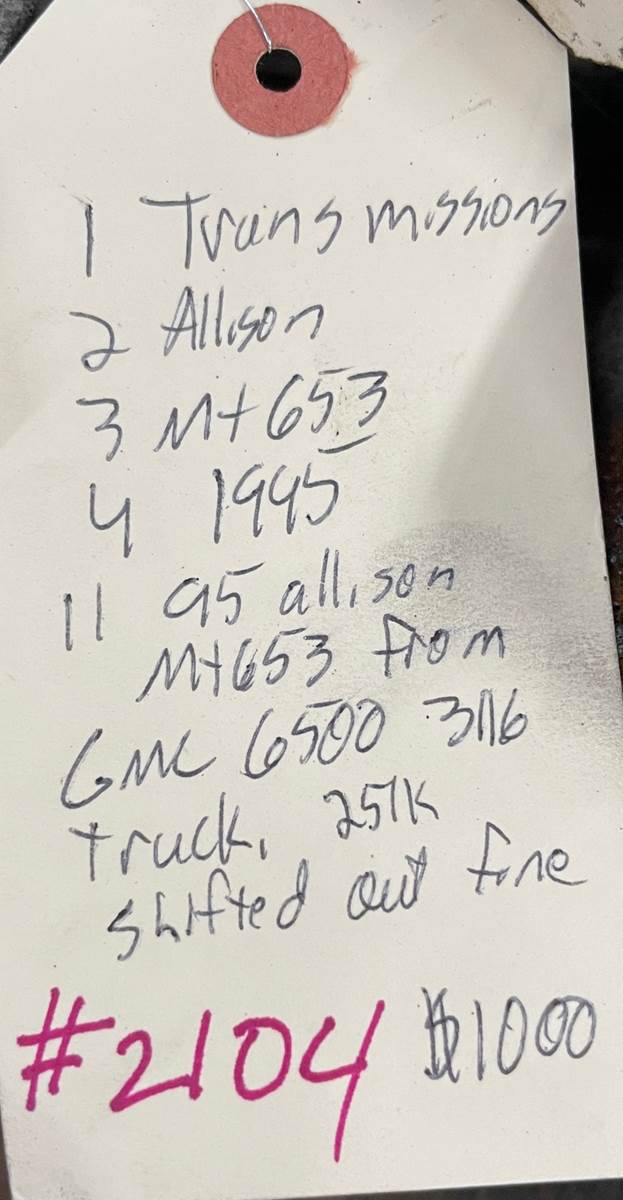 1 Transmissions
2 Allison
3 Mt653
4 1995
11 95 allison
Mt653 from
GMC 6500 3116
truck. 251K
shifted out fine
#2104 $1000